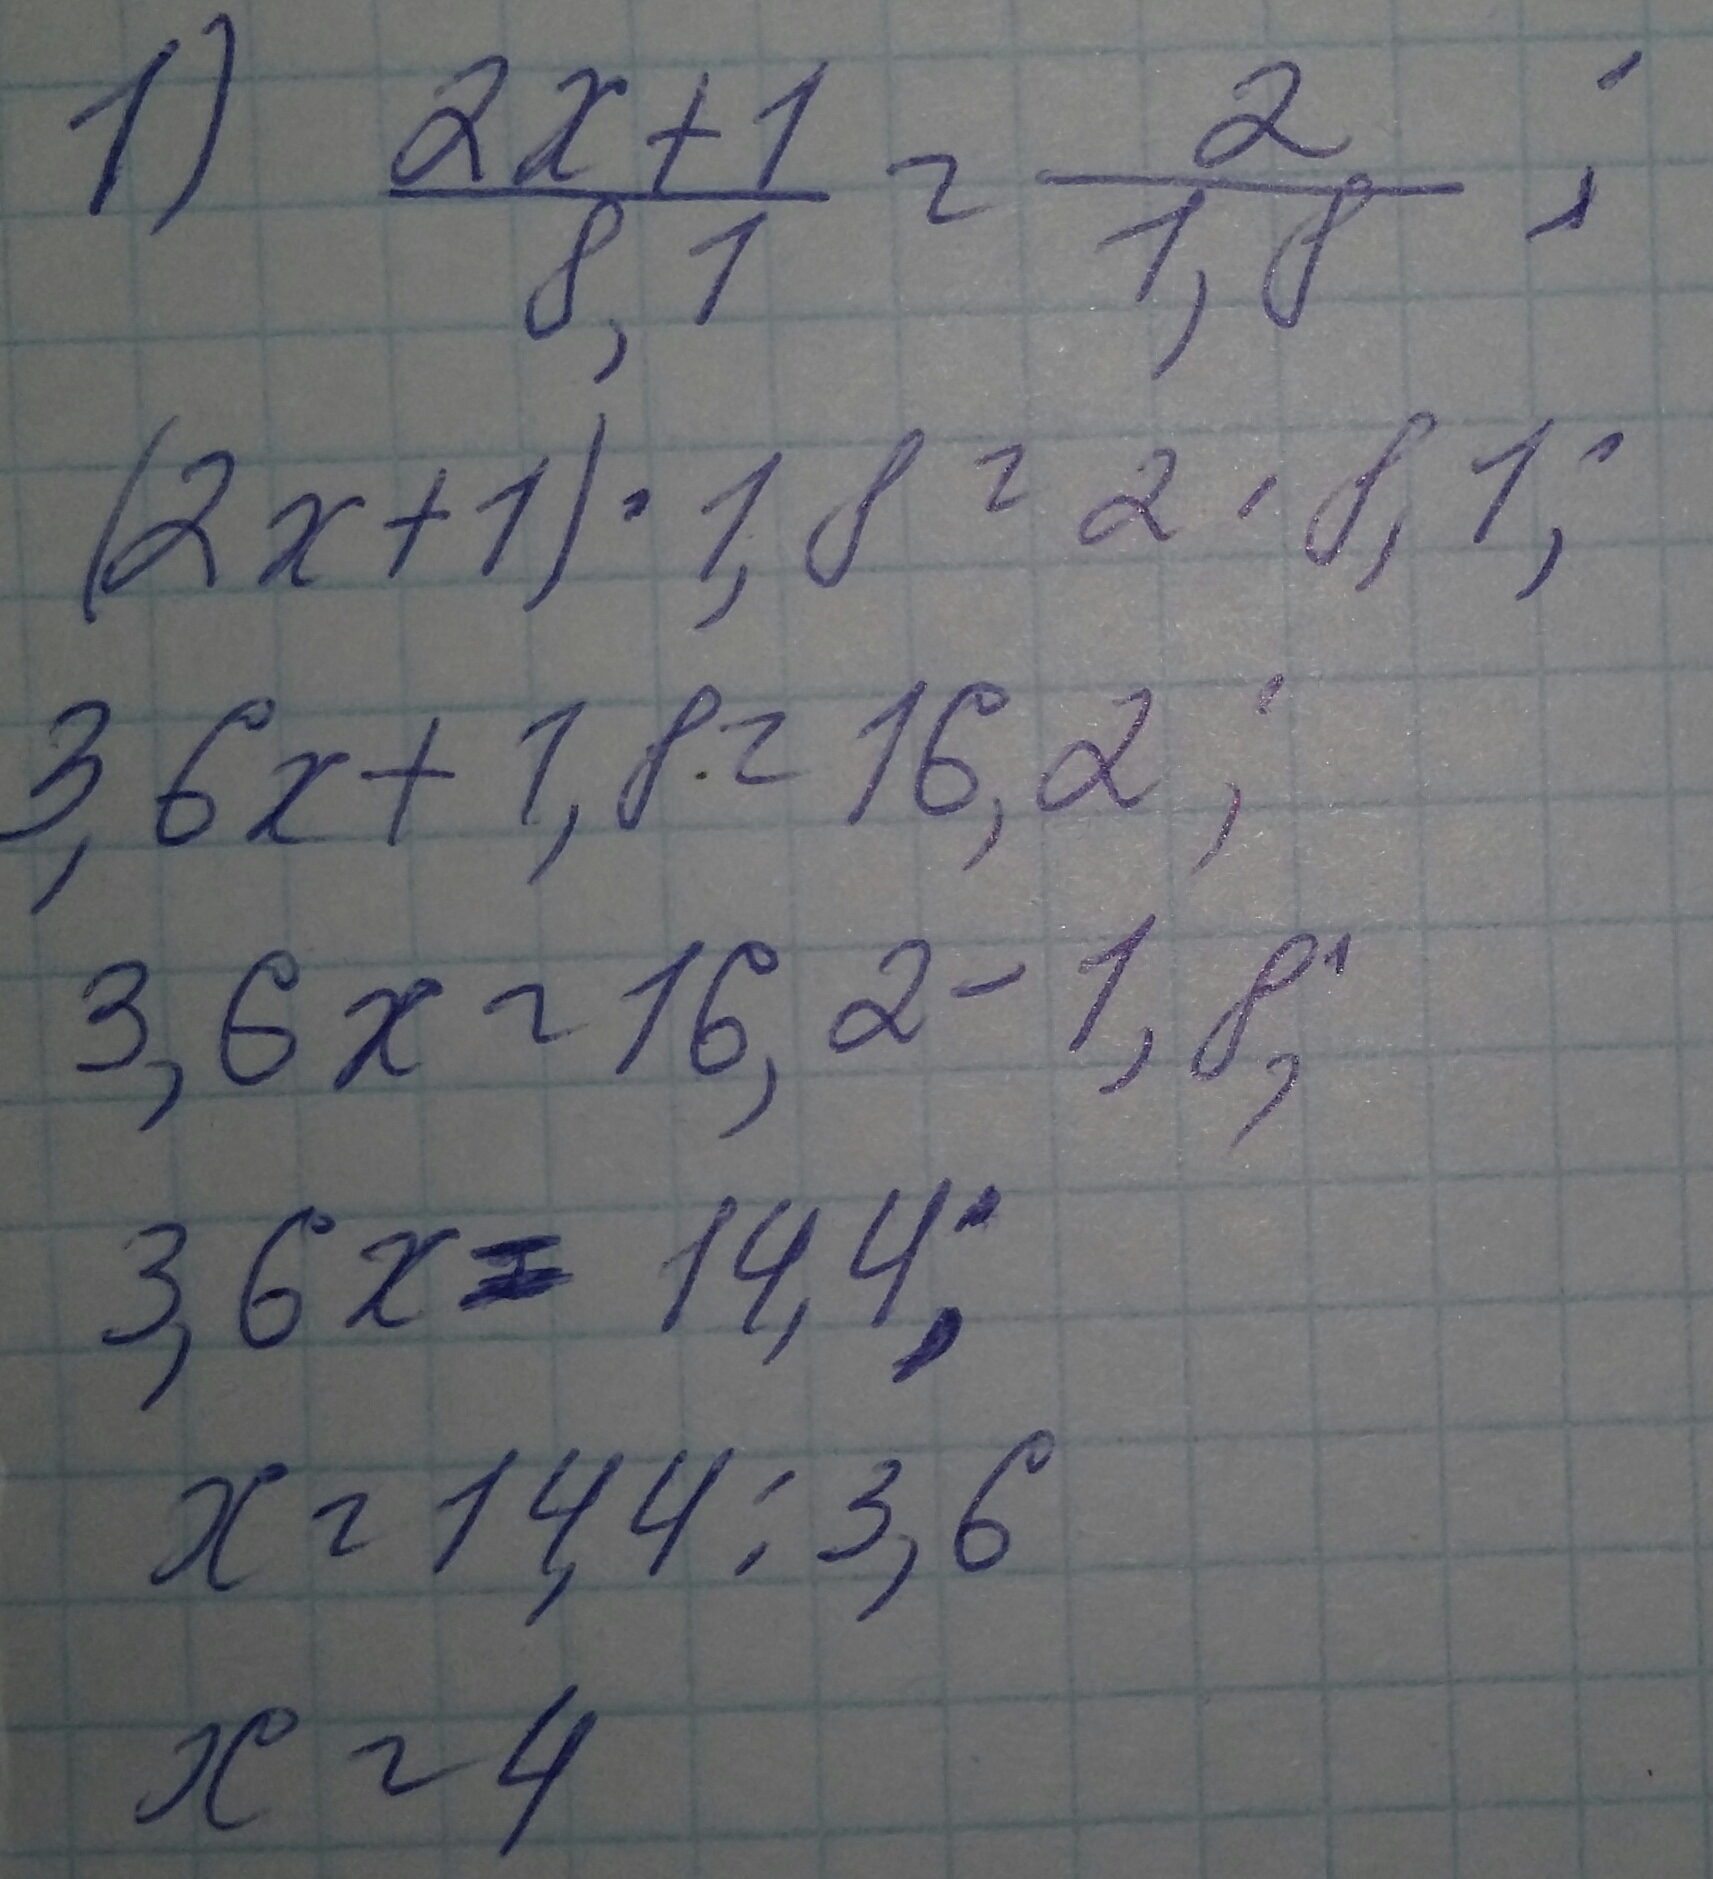 1) (2x+1)/8,1 = 2/1,8 ;
(2x+1)·1,8 = 2·8,1;
3,6x+1,8=16,2;
3,6x=16,2-1,8;
3,6x=14,4;
x=14,4:3,6
x=4